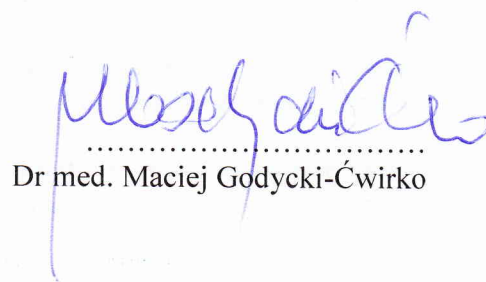 ..................................
Dr med. Maciej Godycki-Ćwirko